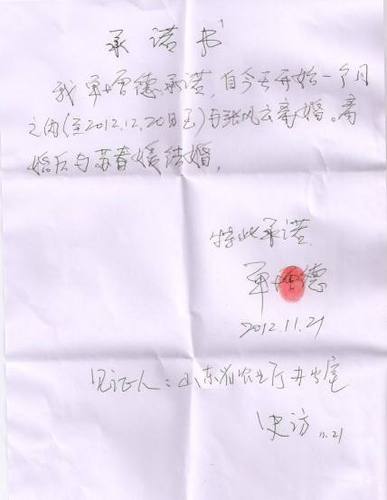 承诺书
我单增德承诺,自今天开始一个月
之内(至2012.12.20日至)与张凤云离婚。离
婚后与苏春媛结婚,
特此承诺
单增德
2012.11.21
见证人:山东省农业厅办公室
史访 11.21